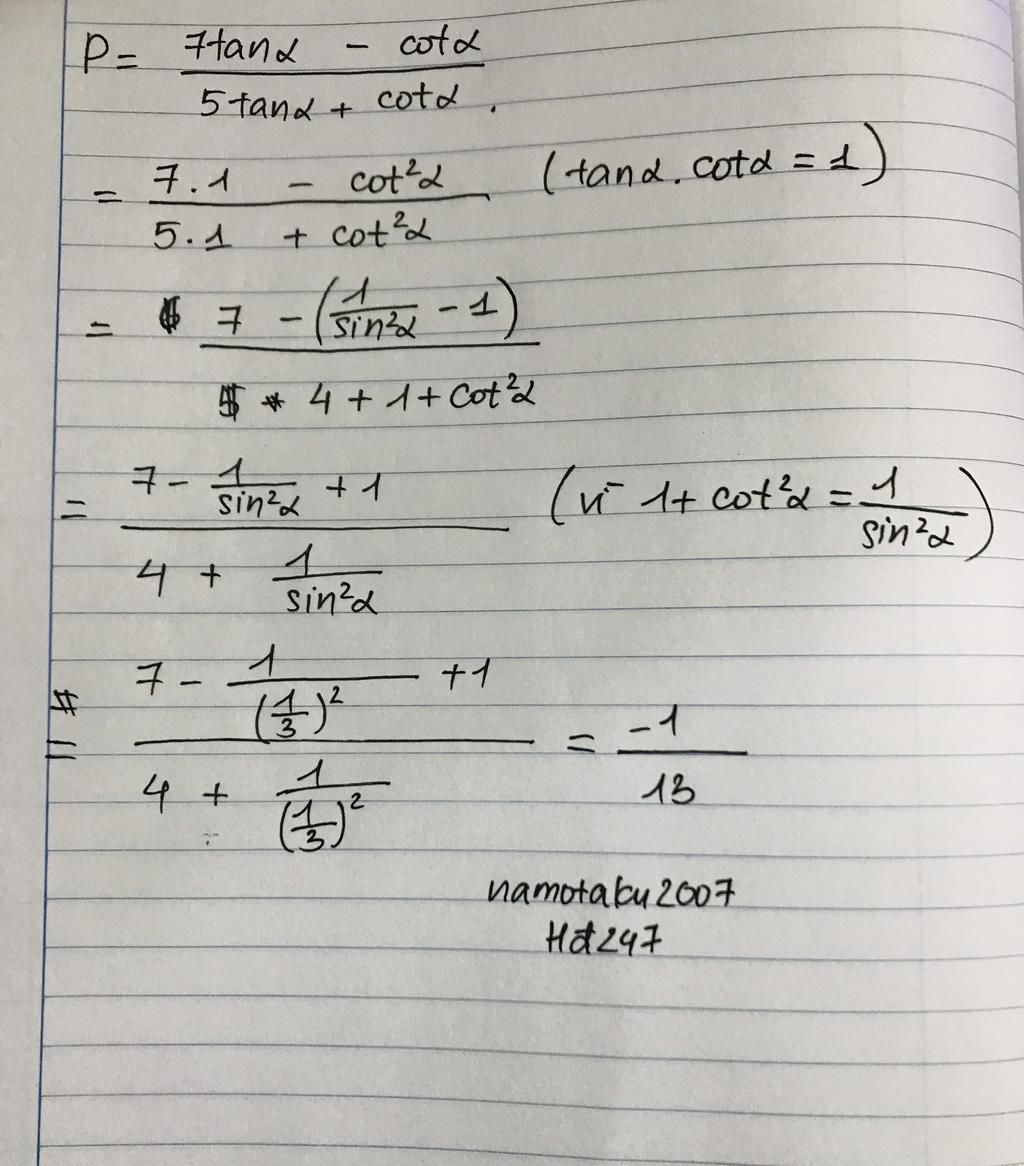 P = (7tanα - cotα) / (5tanα + cotα).
= (7.1 - cot²α) / (5.1 + cot²α) (tanα.cotα = 1)
= (7 - (1/sin²α - 1)) / (4 + 1 + cot²α)
= (7 - 1/sin²α + 1) / (4 + 1/sin²α) (vì 1 + cot²α = 1/sin²α)
= (7 - 1/(1/3)² + 1) / (4 + 1/(1/3)²) = -1/13
namotaku2007
Hd247